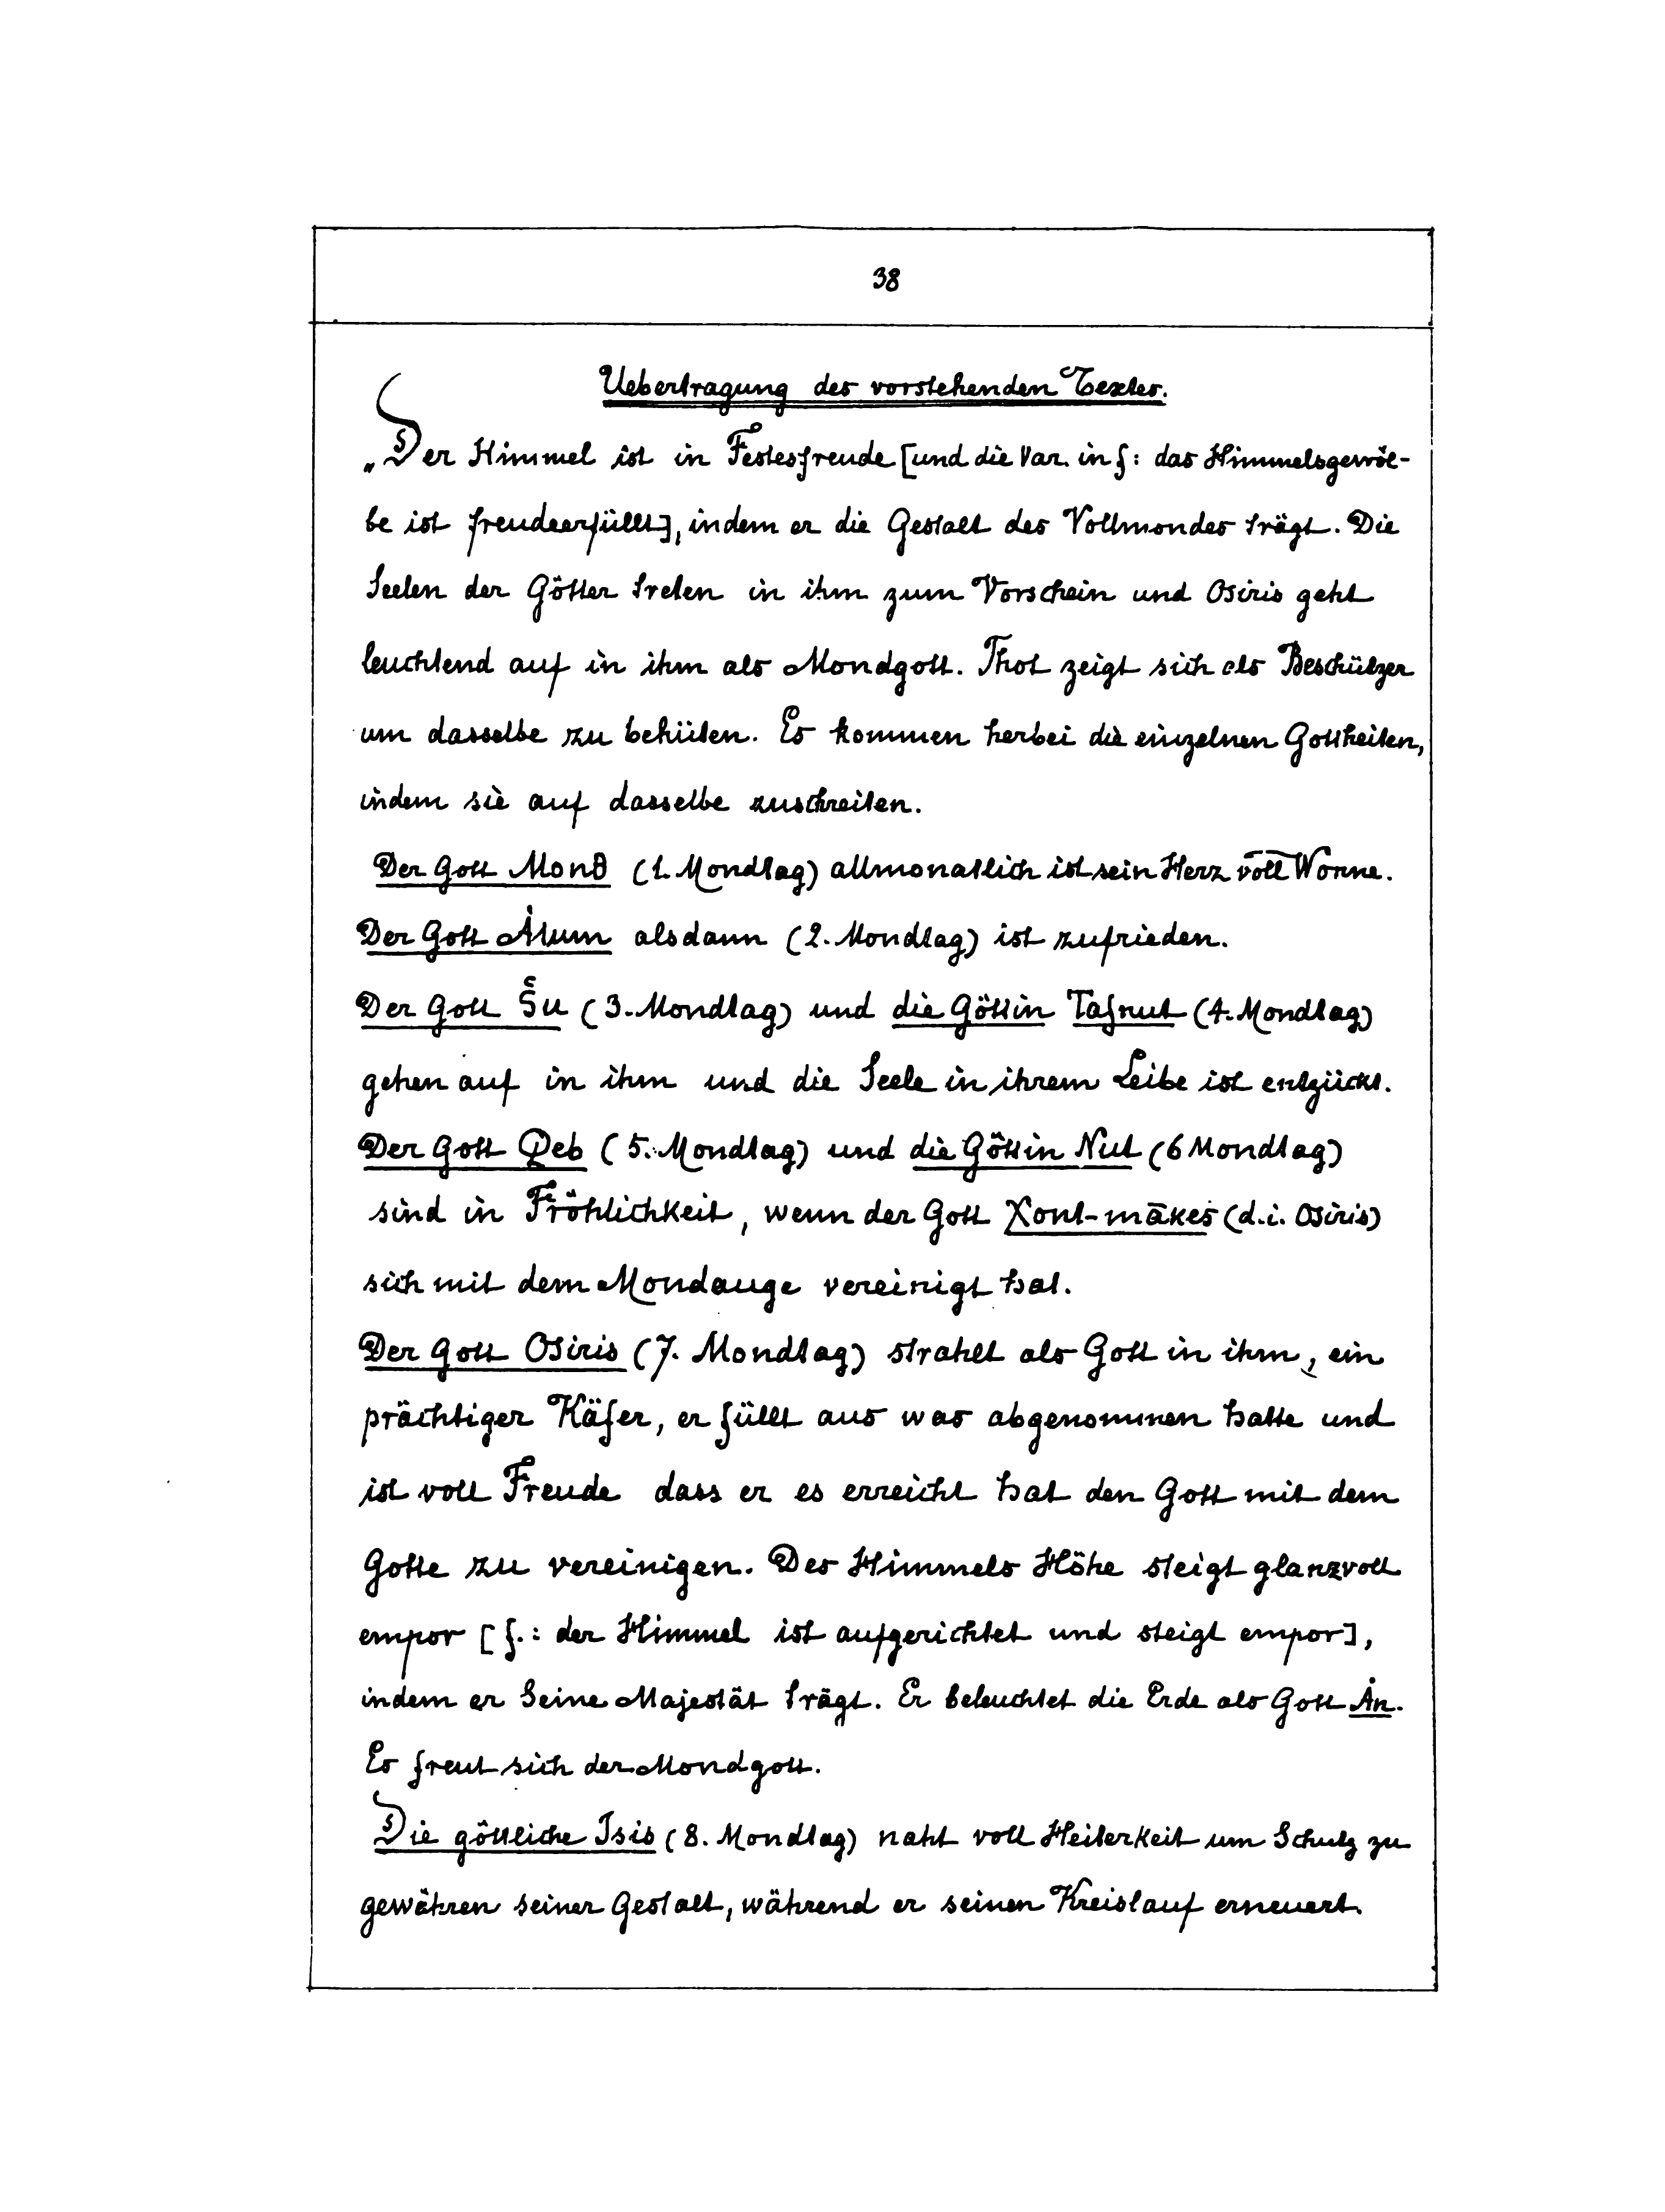 38
Uebertragung des vorstehenden Textes.
„Der Himmel ist in Festesfreude [und die Var. in f: das Himmelsgewöl-
be ist freudeerfüllt], indem er die Gestalt des Vollmondes trägt. Die
Seelen der Götter treten in ihm zum Vorschein und Osiris geht
leuchtend auf in ihm als Mondgott. Thot zeigt sich als Beschützer
um dasselbe zu behüten. Es kommen herbei die einzelnen Gottheiten,
indem sie auf dasselbe zuschreiten.
Der Gott Monθ (1. Mondtag) allmonatlich ist sein Herz voll Wonne.
Der Gott Ȧtum alsdann (2. Mondtag) ist zufrieden.
Der Gott Šu (3. Mondtag) und die Göttin Tafnut (4. Mondtag)
gehen auf in ihm und die Seele in ihrem Leibe ist entzückt.
Der Gott Qeb (5. Mondtag) und die Göttin Nut (6 Mondtag)
sind in Fröhlichkeit, wenn der Gott Xont-mākes (d.i. Osiris)
sich mit dem Mondauge vereinigt hat.
Der Gott Osiris (7. Mondtag) strahlt als Gott in ihm, ein
prächtiger Käfer, er füllt aus was abgenommen hatte und
ist voll Freude dass er es erreicht hat den Gott mit dem
Gotte zu vereinigen. Des Himmels Höhe steigt glanzvoll
empor [f.: der Himmel ist aufgerichtet und steigt empor],
indem er Seine Majestät trägt. Er beleuchtet die Erde als Gott Ȧn.
Es freut sich der Mondgott.
Die göttliche Isis (8. Mondtag) naht voll Heiterkeit um Schutz zu
gewähren seiner Gestalt, während er seinen Kreislauf erneuert.